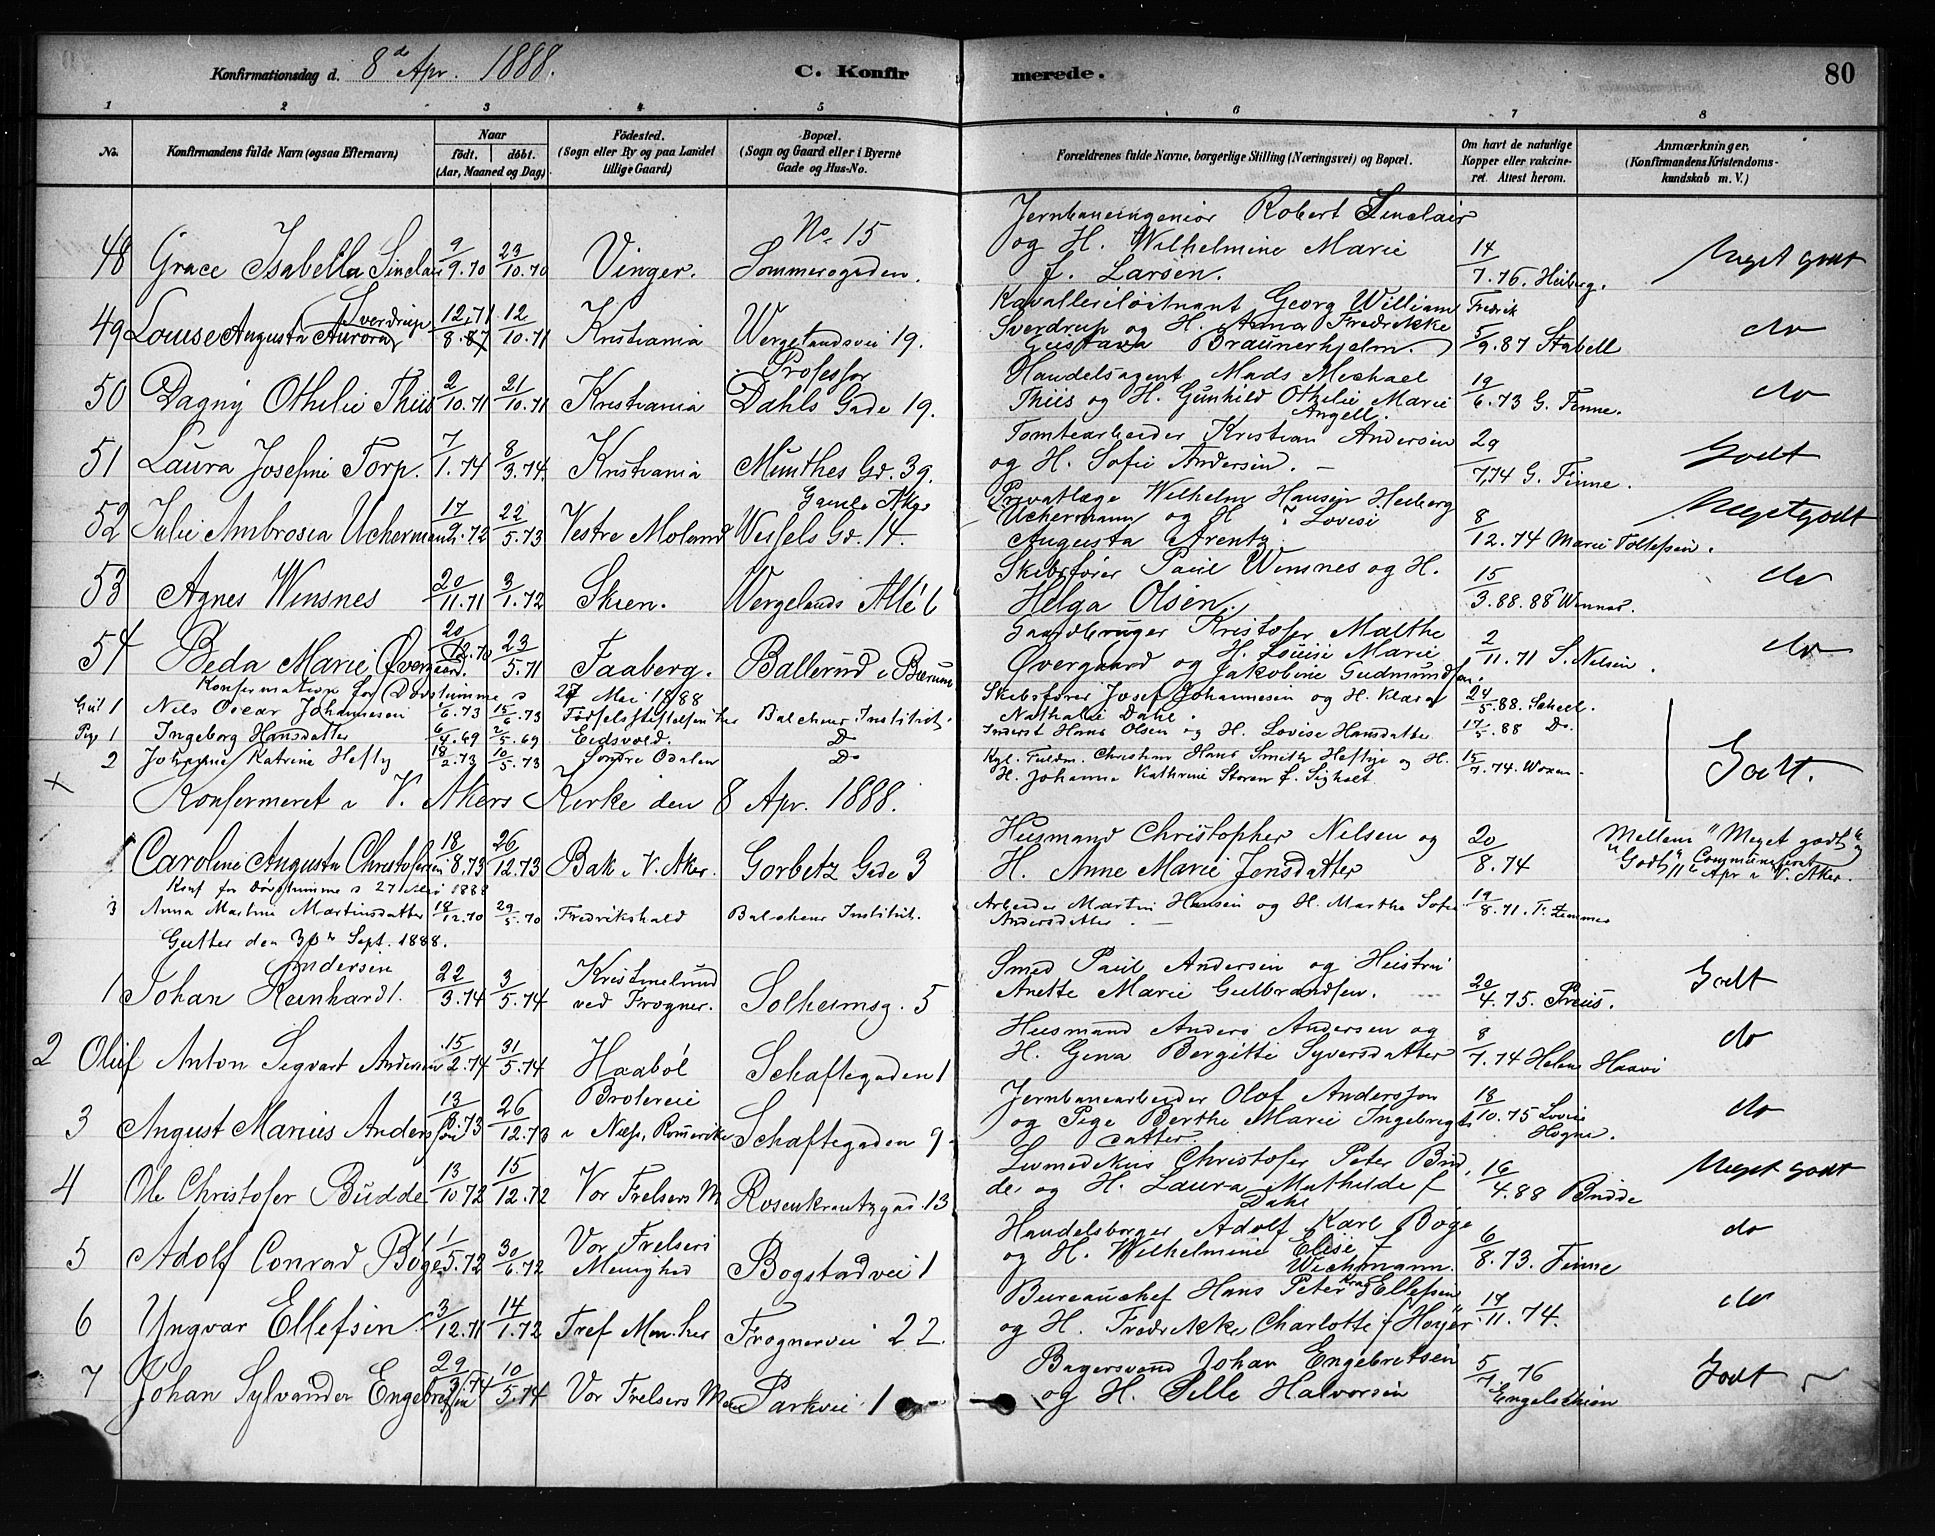 Konfirmationsdag d. 8de Apr. 1888.
C. Konfirmerede.
80
1 2 3 4 5 6 7 8
No.
Konfirmandens fulde Navn (ogsaa Efternavn)
Naar
födt. döbt.
(Aar, Maaned og Dag)
Födested.
(Sogn eller By og paa Landet
tillige Gaard)
Bopæl.
(Sogn og Gaard eller i Byerne
Gade og Hus-No.
Forældrenes fulde Navne, borgerlige Stilling (Næringsvei) og Bopæl.
Om havt de naturlige
Kopper eller vakcine-
ret. Attest herom.
Anmærkninger.
(Konfirmandens Kristendoms-
kundskab m. V.)
48 Grace Isabella Sinclair 9/9.70 23/10.70 Vinger. No. 15 Sommerogaden.
Jernbaneingeniør Robert Sinclair
og H. Wilhelmine Marie
f. Larsen.
14/7.76. Heiberg. Meget godt
49 Louise Augusta Aurora Sverdrup 12.71/8.87 12/10.71 Kristiania Wergelandsvei 19.
Kavalleriløitnant Georg William
Sverdrup og H. Anna Fredrikke
Gustava Braunerhjelm.
Fredrik 5/9.87 Stabell do
50 Dagny Othilie Thiis 2/10.71 21/10.71 Kristiania Professor Dahls Gade 19.
Handelsagent Mads Michael
Thiis og H. Gunhild Othilie Marie
Angell.
19/6.73 G. Finne. do
51 Laura Josefine Torp. 7/1.74 8/3.74. Kristiania Munthes Gd. 39.
Tomtearbeider Kristian Andersen
og H. Sofie Andersen. —
29/7.74 G. Finne. Godt
52 Julie Ambrosia Uchermann. 17/9.72 22/5.73 Vestre Moland Gamle Aker Wessels Gd. 14.
Privatlæge Wilhelm Hansen Heiberg
Uchermann og H ? Lovise
Augusta Arentz.
8/12.74 Marie Tollefsen. Meget godt
53 Agnes Winsnes 20/11.71 3/1.72 Skien. Wergelands Allé 6
Skibsfører Paul Winsnes og H.
Helga Olsen.
15/3.88. 88 Winnæs. do
54 Beda Marie Øvergaard. 20/12.70 23/5.71 Faaberg. Ballerud i Bærum
Gaardbruger Kristofer Malthe
Øvergaard og H. Louise Marie
Jakobine Gudmundsen.
2/11.71 S. Nelsen. do
Konfermation for Døvstumme d 27 Mai 1888
Gut 1 Nils Oscar Johannesen 1/6.73 15/6.73 Fødselsstiftelsen her Balchens Institut.
Skibsfører Josef Johannesen og H. Klara
Nathalie Dahl.
24/5.88. Scheel.
Pige 1 Ingeborg Hansdatter 6/4.69 2/5.69 Eidsvold Do
Inderst Hans Olsen og H. Lovise Hansdatter
17/5.88 Do.
2 Johanne Katrine Hefty 18/2.73 10/5.73 Søndre Odalen Do
Kgl. Fuldm. Christian Hans Smith Heftye og H.
H. Johanna Kathrine Storen f. Sigholt
15/7.74. Woxen.
Godt.
x Konfermeret i V. Akers Kirke den 8 Apr. 1888.
1 Caroline Augusta Christofersen 18/8.73 26/12.73 Bak i V. Aker. Gorbetz Gade 3
Husmand Christopher Nilsen og
H. Anne Marie Jensdatter
20/8.74
Mellem "Meget godt" og
"Godt" Communiceret
11te Apr i V. Aker.
Konf for Døvstumme d 27 Mai 1888
3 Anna Martine Martinsdatter 18/12.70 29/5.70 Fredrikshald Balchens Institut.
Arbeider Martin Hansen og H. Marthe Sofie
Andersdatter —
19/8.71. T. Zemmer
Gutter den 30te Sept. 1888.
1 Johan Reinhardt. Andersen 22/3.74 3/5.74 Kristinelund ved Frogner. Solheimsg. 5
Smed Paul Andersen og Hustru
Anette Marie Gulbrandsen.
20/4.75. Preus. Godt
2 Oluf Anton Sigvart Andersen 15/2.74 31/5.74 Haabøl Schaftegaden 1
Husmand Anders Andersen og
H. Gina Bergitte Syversdatter
8/7.74 Helene Haavi do
3 August Marius Andersson 13/8.73 26/12.73 Broterie i Næs, Romerike Schaftegaden 9
Jernbanearbeider Olof Andersson
og Pige Berthe Marie Ingebrigts
datter.
18/10.75 Lovise Hogne. do
4 Ole Christofer Budde 13/10.72 15/12.72 Vor Frelsers M Rosenkrantzgad. 13
Livmedikus Christofer Peter Bud
de og H. Laura Mathilde f
Dahl
16/4.88 Budde Meget godt
5 Adolf Conrad Boge 1/5.72 30/6.72 Vor Frelsers Menighed Bogstadvei 1
Handelsborger Adolf Karl Boge
og H. Wilhelmine Elise f
Wichmann.
6/8.73. Finne do
6 Yngvar Ellefsen 3/12.71 14/1.72 Tref Men. her Frognervei 22.
Bureauchef Hans Peter Krag Ellefsen
og H. Fredrikke Charlotte f Høyer.
17/11.74. do
7 Johan Sylvander Engebretsen 29/3.74 10/5.74 Vor Frelsers M Parkvei 1
Bagersvend Johan Engebretsen
og H. Pille Halvorsen
5/7.76 Engelschiøn Godt